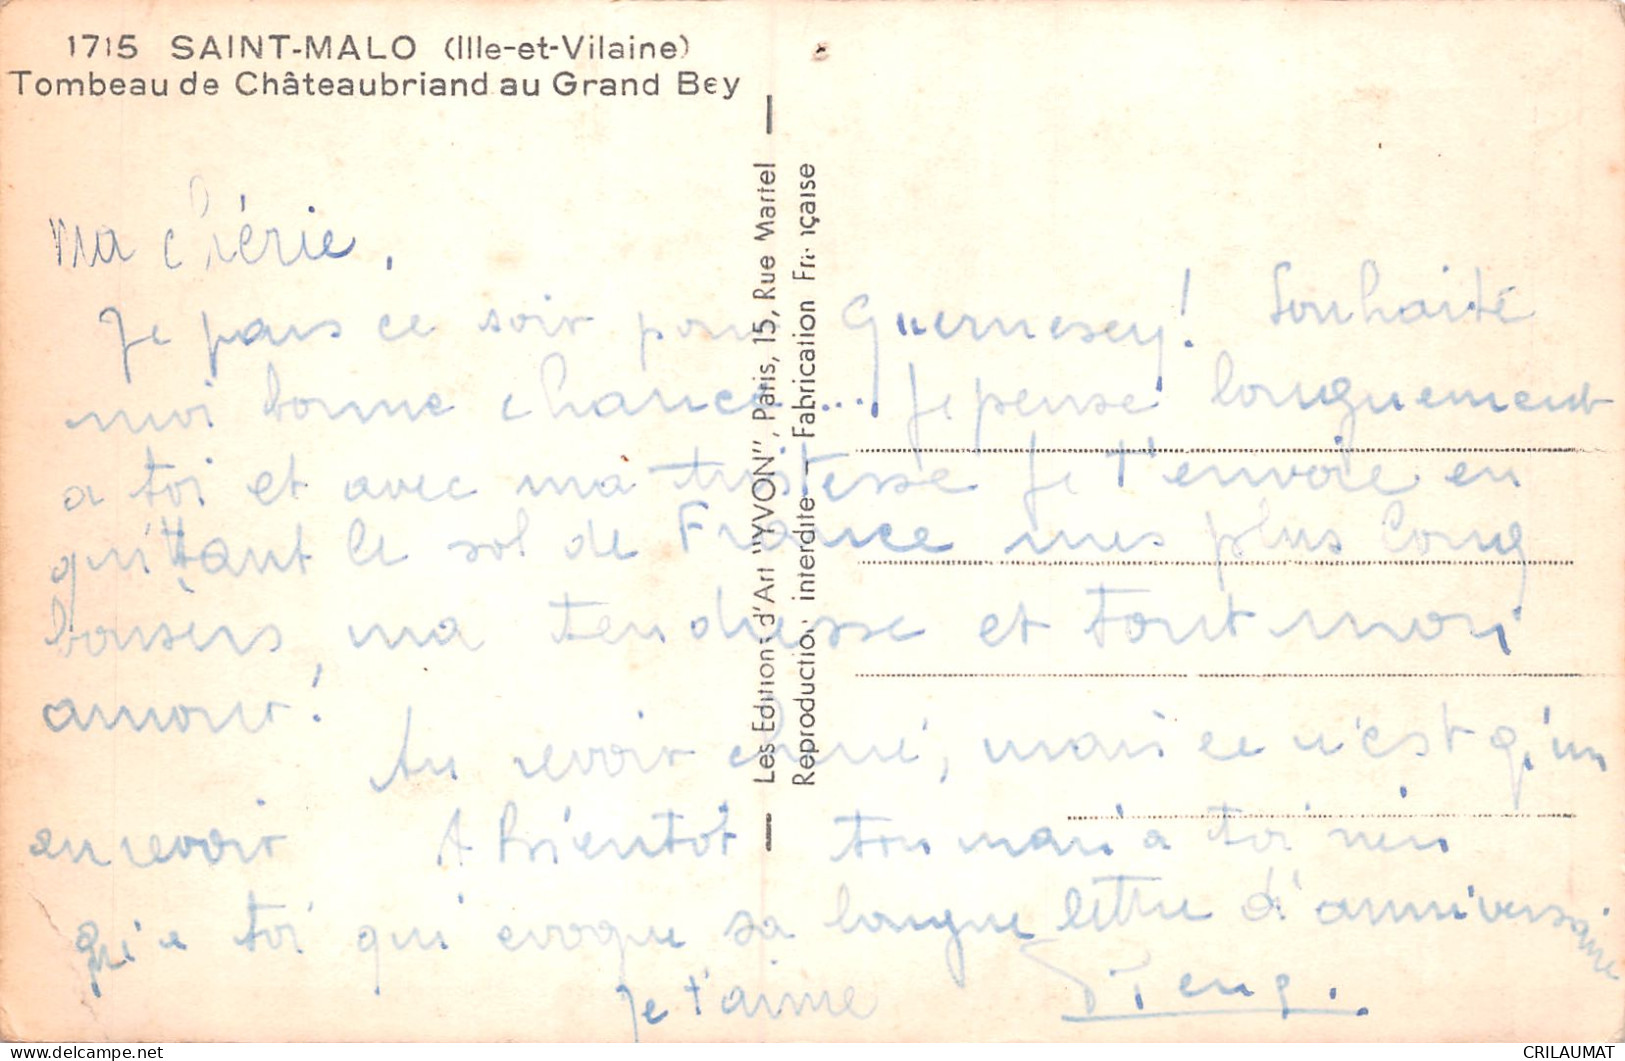 1715 SAINT-MALO (Ille-et-Vilaine)
Tombeau de Châteaubriand au Grand Bey
Ma chérie,
Je pars ce soir pour Guernesey! Souhaite
moi bonne chance... Je pense longuement
a toi et avec ma tristesse je t'envoie en
quittant le sol de France mes plus long
baisers, ma tendresse et tout mon
amour!
Au revoir cherie, mais ce n'est qu'un
au revoir A bientôt ton mari a toi rien
qu'a toi qui evoque sa longue lettre d'anniversaire
Je t'aime
Les Editions d'Art "YVON", Paris, 15, Rue Martel
Reproduction interdite — Fabrication Française
CRILAUMAT